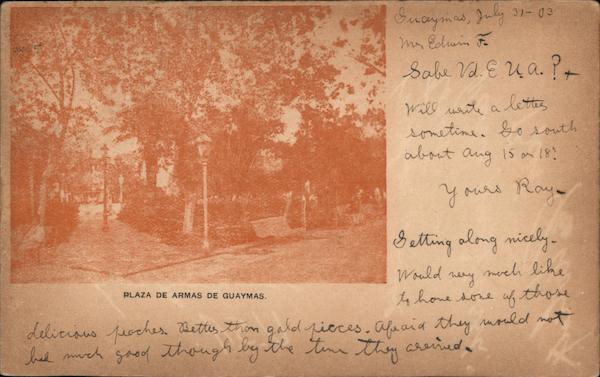 Guaymas, July 31-03
Mrs Edwin F.
Sabe Vd. E U. A. ? +
Will write a letter
sometime. Go south
about Aug 15 or 18.
Yours Ray-
Getting along nicely.
Would very much like
to have some of those
delicious peaches. Better than gold pieces. Afraid they would not
be much good though by the time they arrived.
PLAZA DE ARMAS DE GUAYMAS.